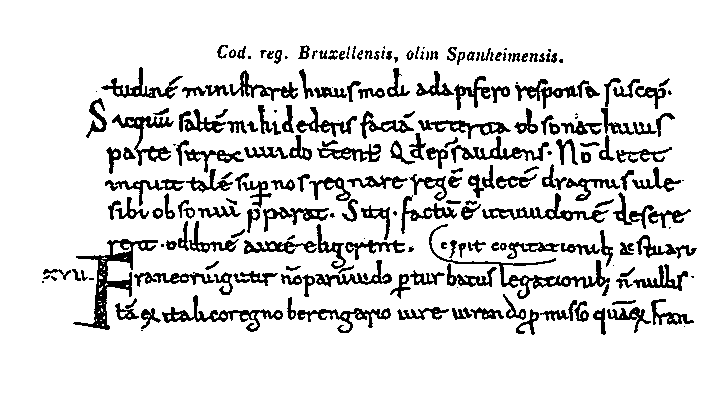 Cod. reg. Bruxellensis, olim Spanheimensis.
tudinē ministraret huiusmodi adapifero responsa suscep̄.
Si equū saltē mihi dederis faciā ut tertia obsonat huius
parte sit rex uuido c̄tent; Qd ep̄s audiens. Nō decet
inquit talē sup nos regnare regē q decē dragmis uile
sibi obsoniū p̄parat. Sicq. factū ē ut uuidonē desere
rent. oddonē autē eligerent. cepit cogitationib; aestuari
XVII. Francorū igitur nō parū uuido pturbatus legationib; ñ nullis
tā ex italico regno berengario iure iurando pmisso quā ex fran